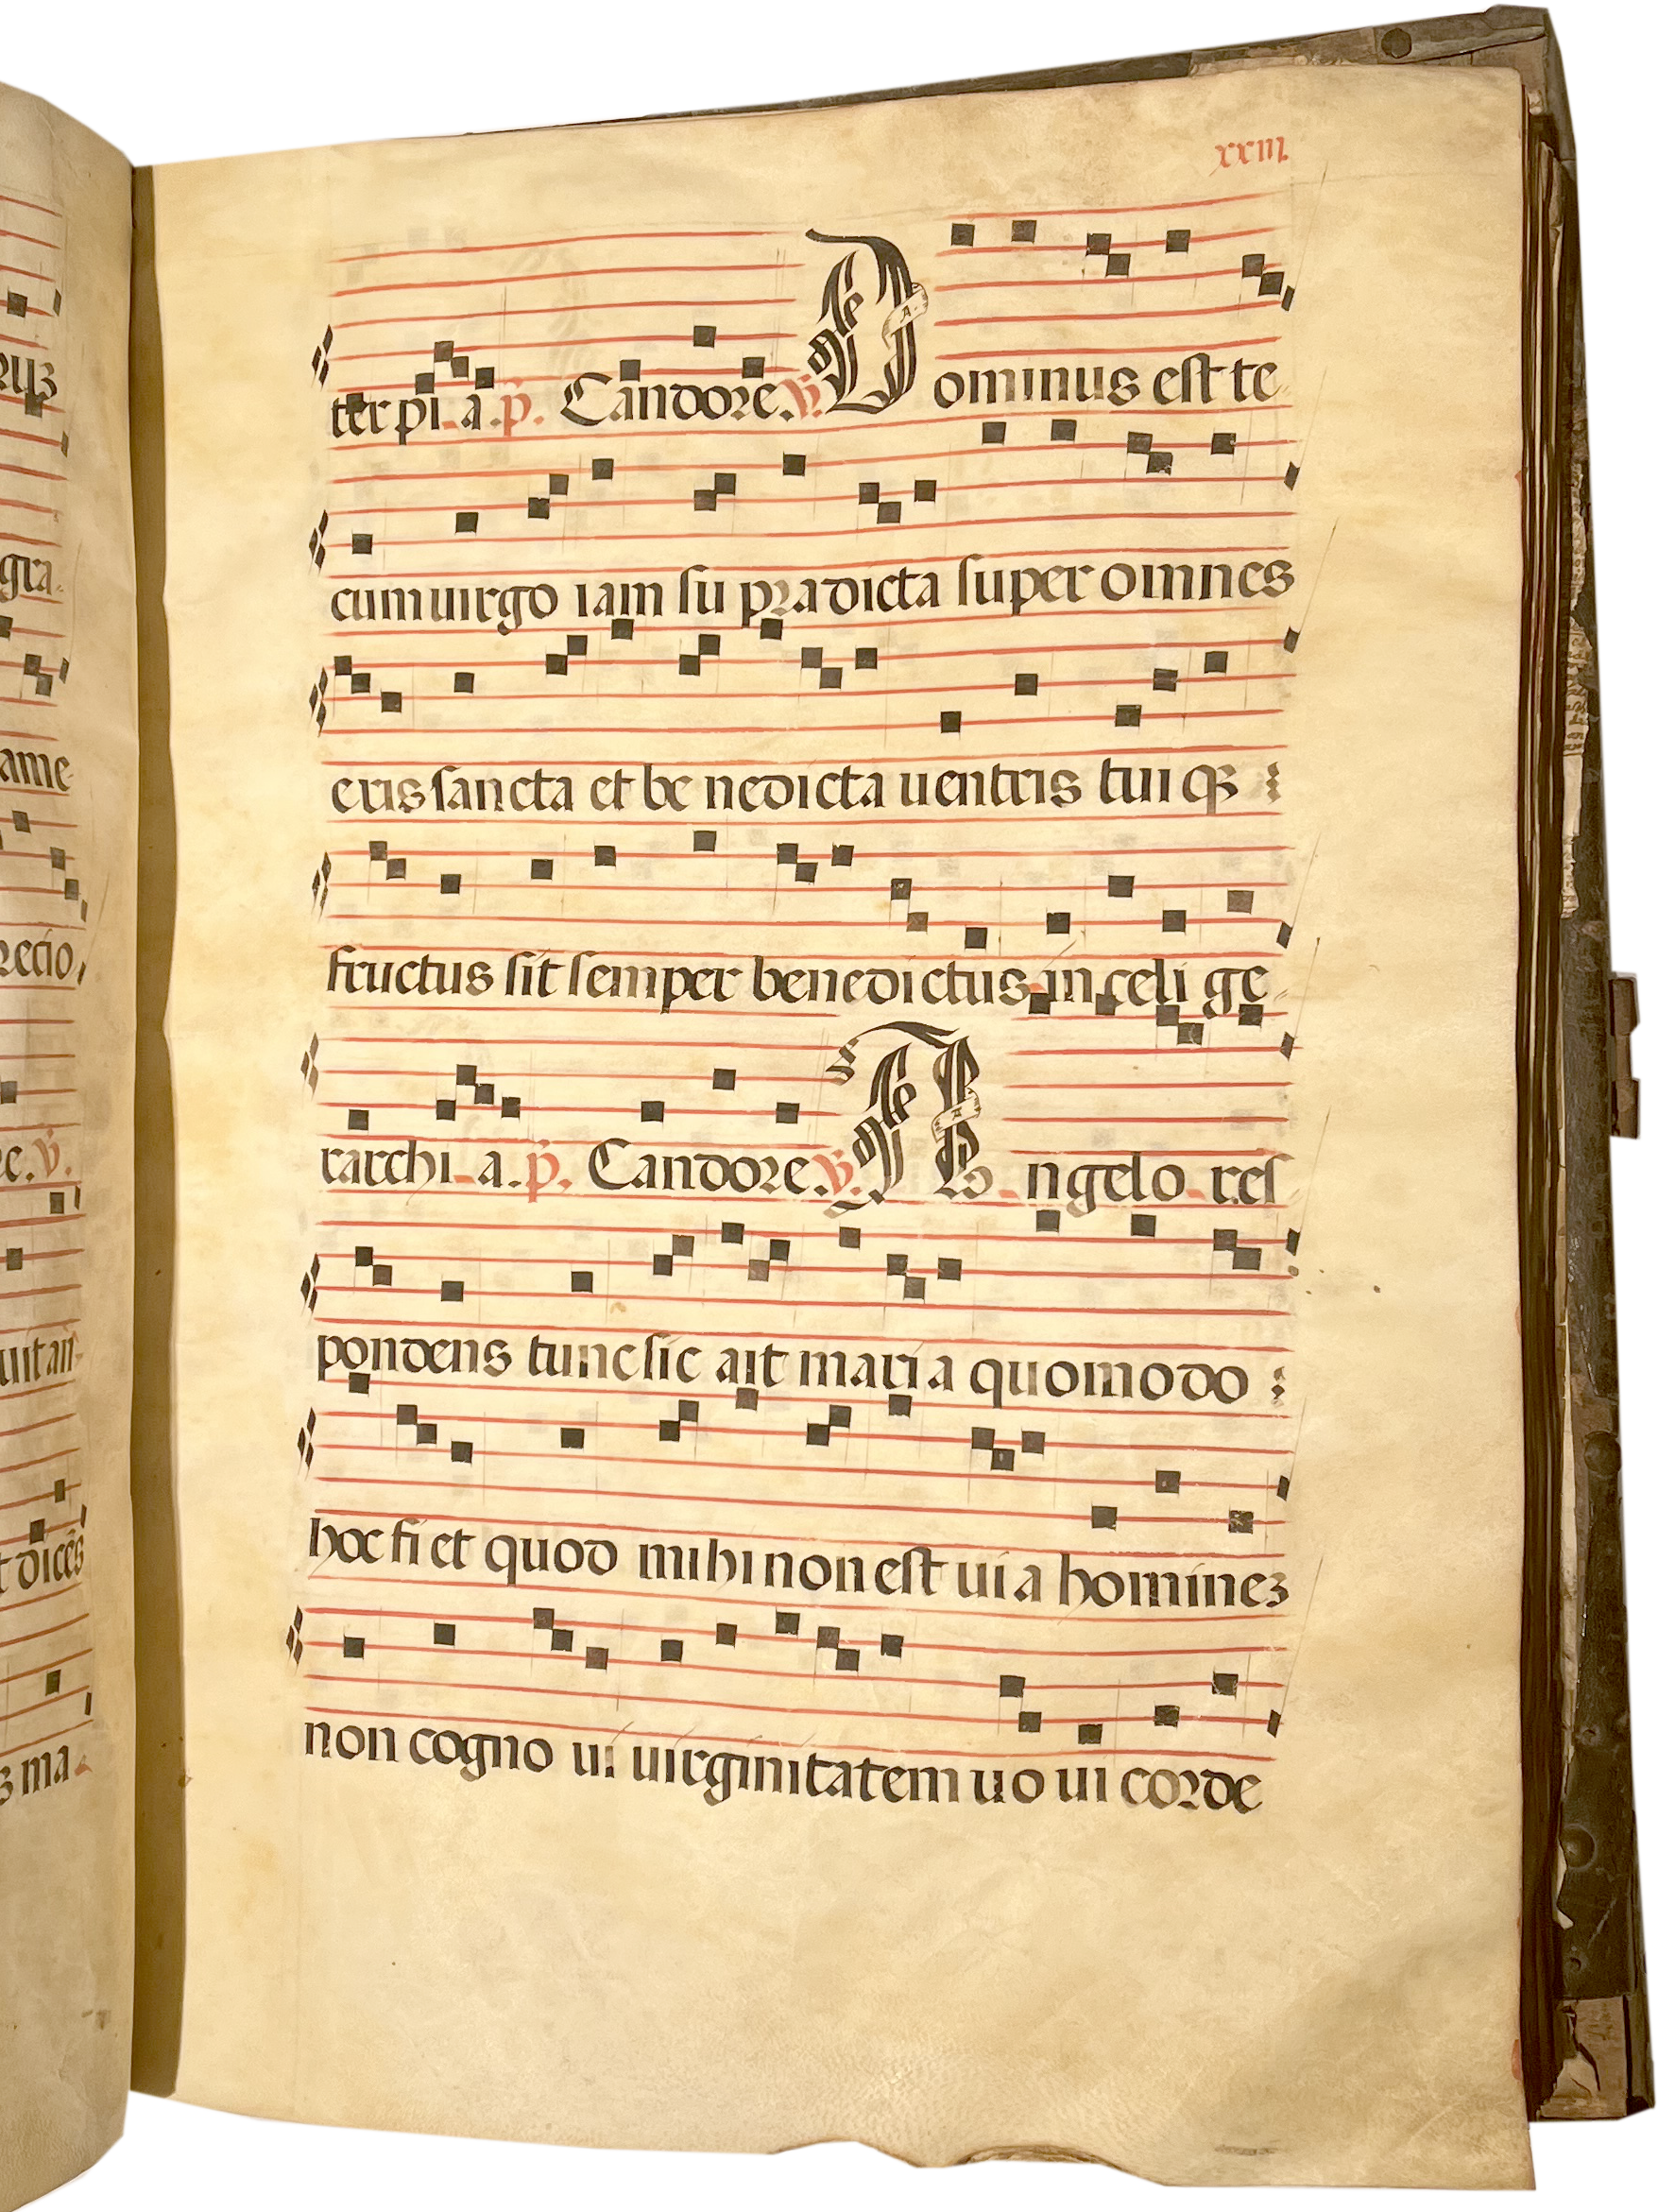 xxiii.
ter pi a. p. Candore. v. Dominus est te
cum uirgo iam su pradicta super omnes
eris sancta et be nedicta uentris tui qȝ
fructus sit semper benedictus in celi ge
rarchi a. p. Candore. v. Angelo res
pondens tunc sic ait mari a quomodo
hoc fi et quod mihi non est ui a homineȝ
non cogno ui uirginitatem uo ui corde
gra
ame
recio
re. v.
uitañ
t dicēs
ȝ ma